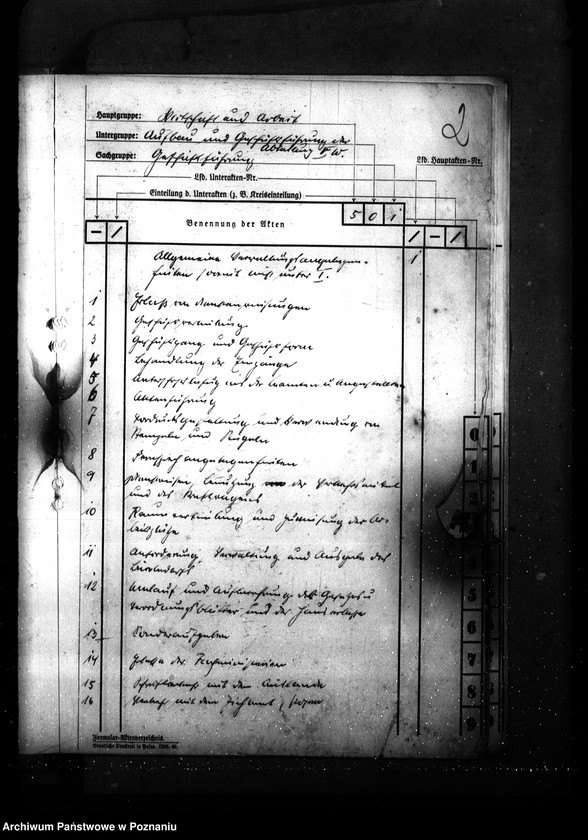 2
Hauptgruppe: Wirtschaft und Arbeit
Untergruppe: Aufbau und Geschäftsführung der
Abteilung W.
Sachgruppe: Geschäftsführung
Lfd. Hauptakten-Nr.
Lfd. Unterakten-Nr.
Einteilung d. Unterakten (z. B. Kreiseinteilung)
5 0 1
Benennung der Akten
– / / – /
Allgemeine Verwaltungsangelegen- 1
heiten soweit nicht unter I.
1 Erlaß von Dienstanweisungen
2 Geschäftsverteilung
3 Geschäftsgang und Geschäftsform
4 Behandlung der Eingänge
5 der Beamten u Angestellten
6 Aktenführung
7 Vordruckgestaltung und Verwendung von
Stempeln und Siegeln
8 Fernsprechangelegenheiten
9 Dienstreisen, Benutzung der Verkehrsmittel
und des Kraftwagens
10 Raumverteilung und Zuweisung der Ar-
beitsplätze
11 Anforderung, Verwaltung und Ausgabe des
Bürobedarfs
12 Umlauf und Aufbewahrung des Gesetzes u
Verordnungsblätter und der Hauserlasse
13 Sonderausgaben
14 Erlasse der Fachministerien
15 Schriftverkehr mit dem Auslande
16 mit dem
0
1
2
5
6
7
8
9
Formular-Aktenverzeichnis.
Staatliche Druckerei in Posen.
Archiwum Państwowe w Poznaniu